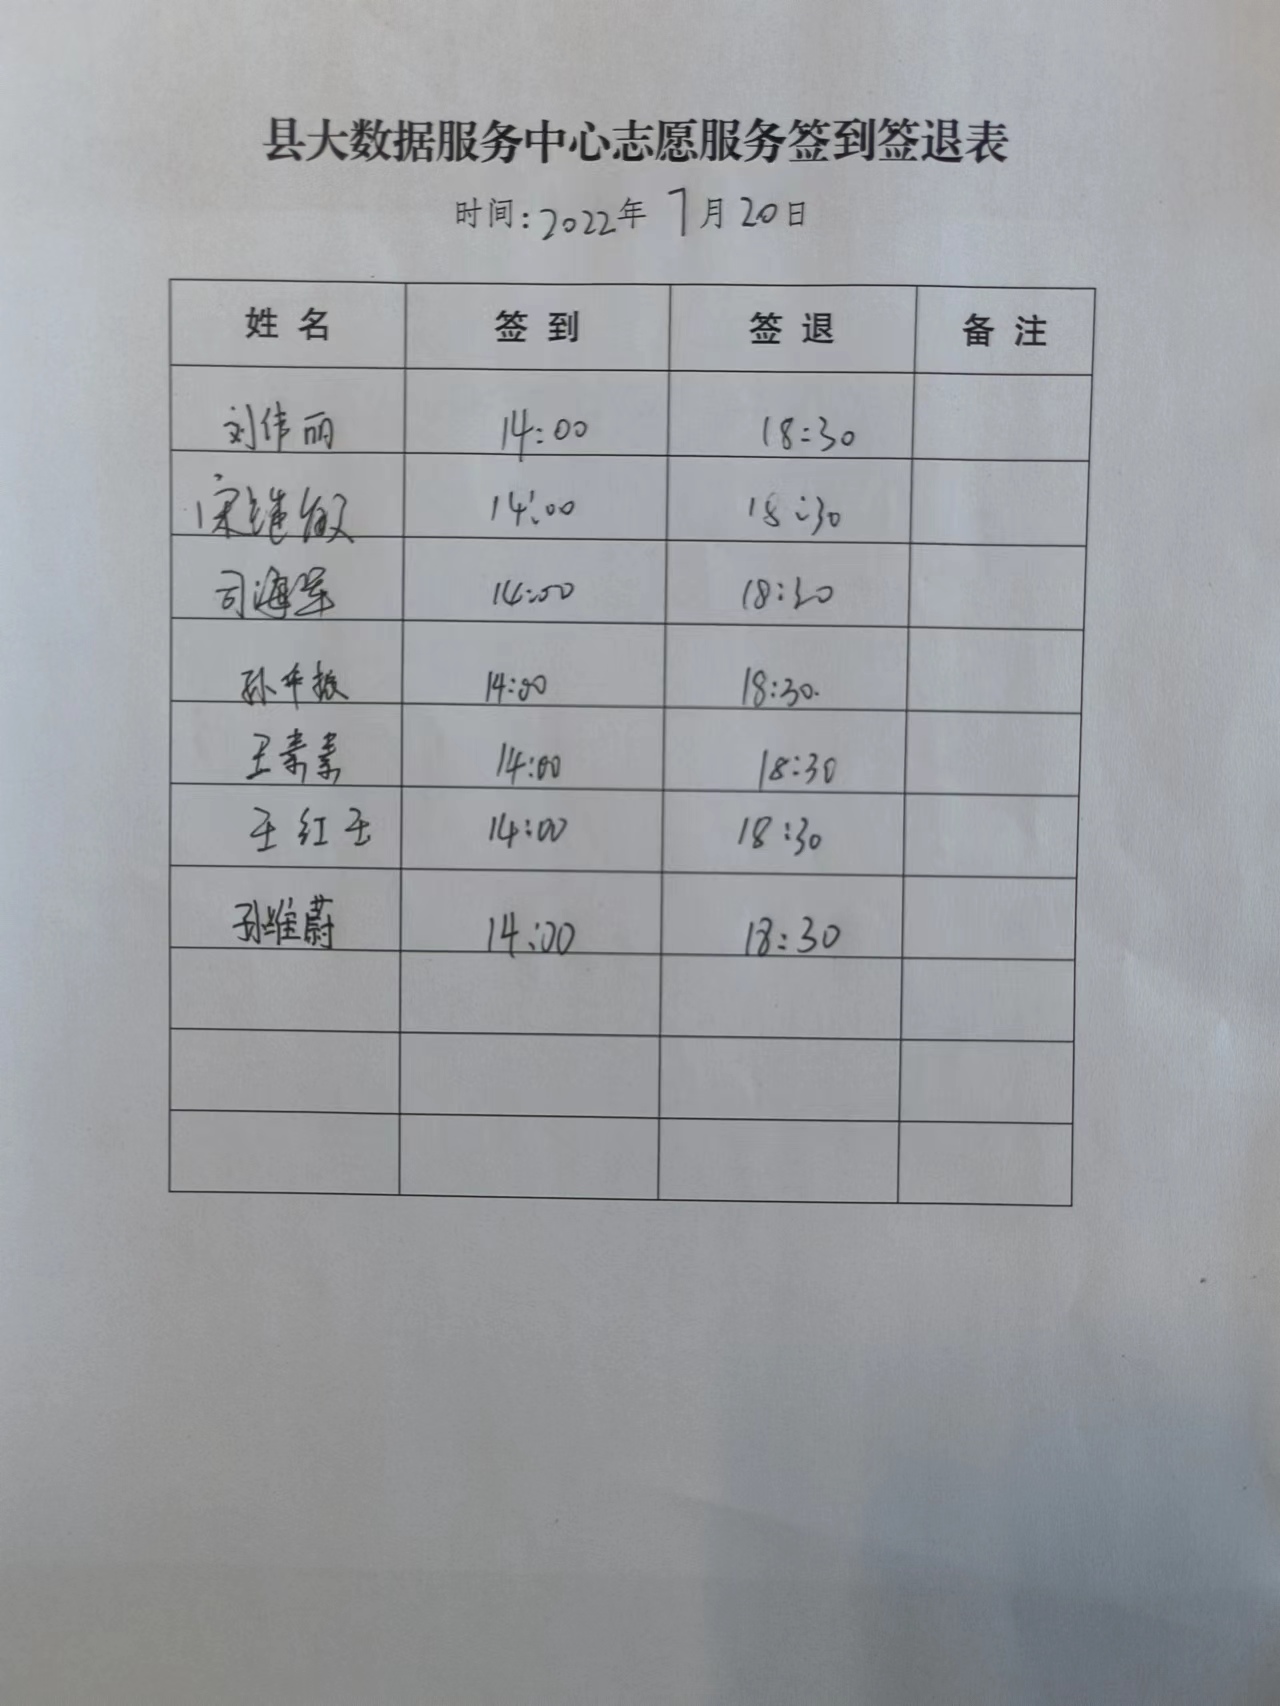 县大数据服务中心志愿服务签到签退表
时间: 2022年 7月20日
姓名 签到 签退 备注
刘伟丽 14:00 18:30
宋继敏 14:00 18:30
司海军 14:00 18:30
孙华振 14:00 18:30
王素素 14:00 18:30
王红玉 14:00 18:30
孙维蔚 14:00 18:30